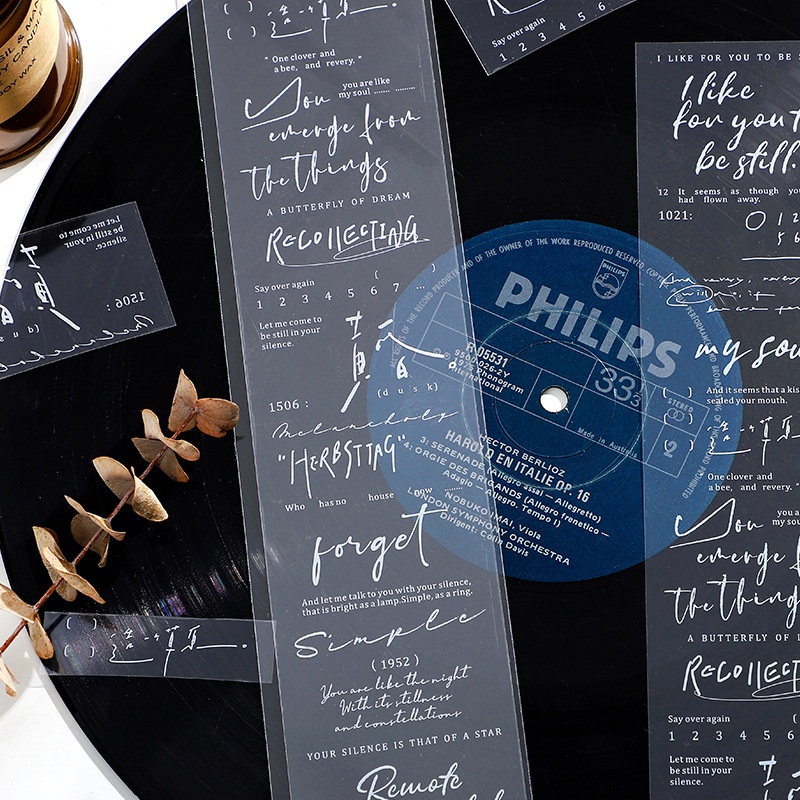 SIL & MAN
Y CANDL
SOY WAX
Say over again
1 2 3 4 5 6
" One clover and
a bee, and revery. "
You
you are like
my soul ...... ........
emerge from
the things
A BUTTERFLY OF DREAM
RECOLLECTING
Say over again ( )
1 2 3 4 5 6 7 ...
Let me come to
be still in your
silence.
(dusk)
1506 :
Melancholy
"HERBSTTAG"
Who has no house now ......
forget
And let me talk to you with your silence,
that is bright as a lamp.Simple, as a ring.
Simple
( 1952 )
You are like the night
With its stillness
and constellations
YOUR SILENCE IS THAT OF A STAR
Remote
Let me come to
be still in your
silence.
1506 :
(dus
PHILIPS
PHILIPS
R 05531
9500 026-2Y
1975 Phonogram
International
33⅓
STEREO
2
Made in Australia
HECTOR BERLIOZ
HAROLD EN ITALIE OP. 16
3: SERENADE (Allegro assai – Allegretto)
4: ORGIE DES BRIGANDS (Allegro frenetico –
Adagio – Allegro, Tempo I)
NOBUKO IMAI, Viola
LONDON SYMPHONY ORCHESTRA
Dirigent: Colin Davis
OF THE OWNER OF THE WORK REPRODUCED RESERVED
I LIKE FOR YOU TO BE S
I like
for you t
be still.
12 It seems as though yo
had flown away.
1021:
0 1 2
5 6
my sou
And it seems that a kis
sealed your mouth.
One clover and
a bee, and revery. "
You
you a
my sou
emerge f
the thing
A BUTTERFLY OF D
RECOLLECT
Say over again
1 2 3 4 5 6
Let me come to
be still in your
silence.